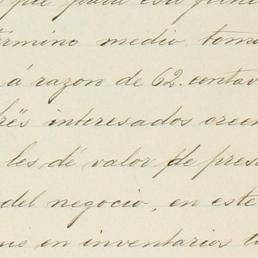 que para esa
término medio toma
á razon de 62. centav
interesados creen
les dé valor de pres
del negocio, en este
en inventarios